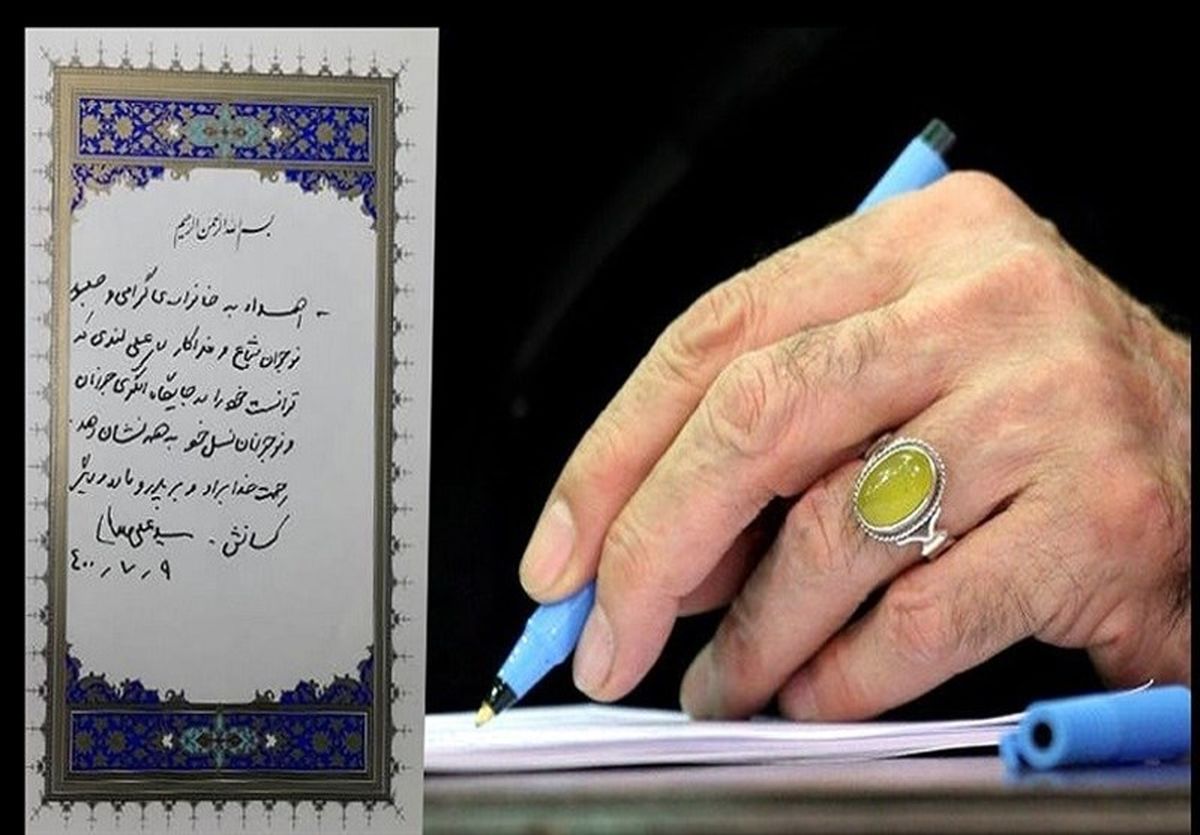 بسم الله الرحمن الرحیم
- اهداء به خانواده‌ی گرامی و صبور
نوجوان شجاع و فداکار علی لندی که
توانست خود را در جایگاه الگوی جوانان
و نوجوانان نسل خود به همه نشان دهد.
رحمت خدا بر او و بر پدر و مادر و دیگر
کسانش. سیدعلی
۴۰۰٫۷٫۹